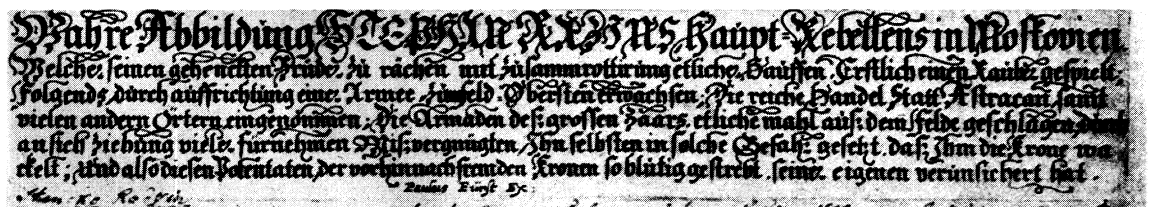 Wahre Abbildung STEPHAN RAZINS Haupt-Rebellens in Moskovien.
Welcher seinen gehenckten Bruder zu rächen mit zusammrottirung etlicher Hauffen, Erstlich einen Rauber gespielt,
Folgends durch auffrichtung einer Armee zum feld-Obersten erwachsen, Die reiche Handel Statt Astracan, samt
vielen andern Örtern eingenommen, Die Armaden deß grossen Zaars etliche mahl auß dem Felde geschlagen, durch
an sich ziehung vieler fürnehmen Mißvergnügten, Ihn selbsten in solche Gefahr gesetzt, daß Ihm die Krone wa
ckelt, Und also diesen Potentaten, der vorhin nach fremden Kronen so blutig gestrebt, seiner eigenen verunsichert hat.
Paulus Fürst Ex: